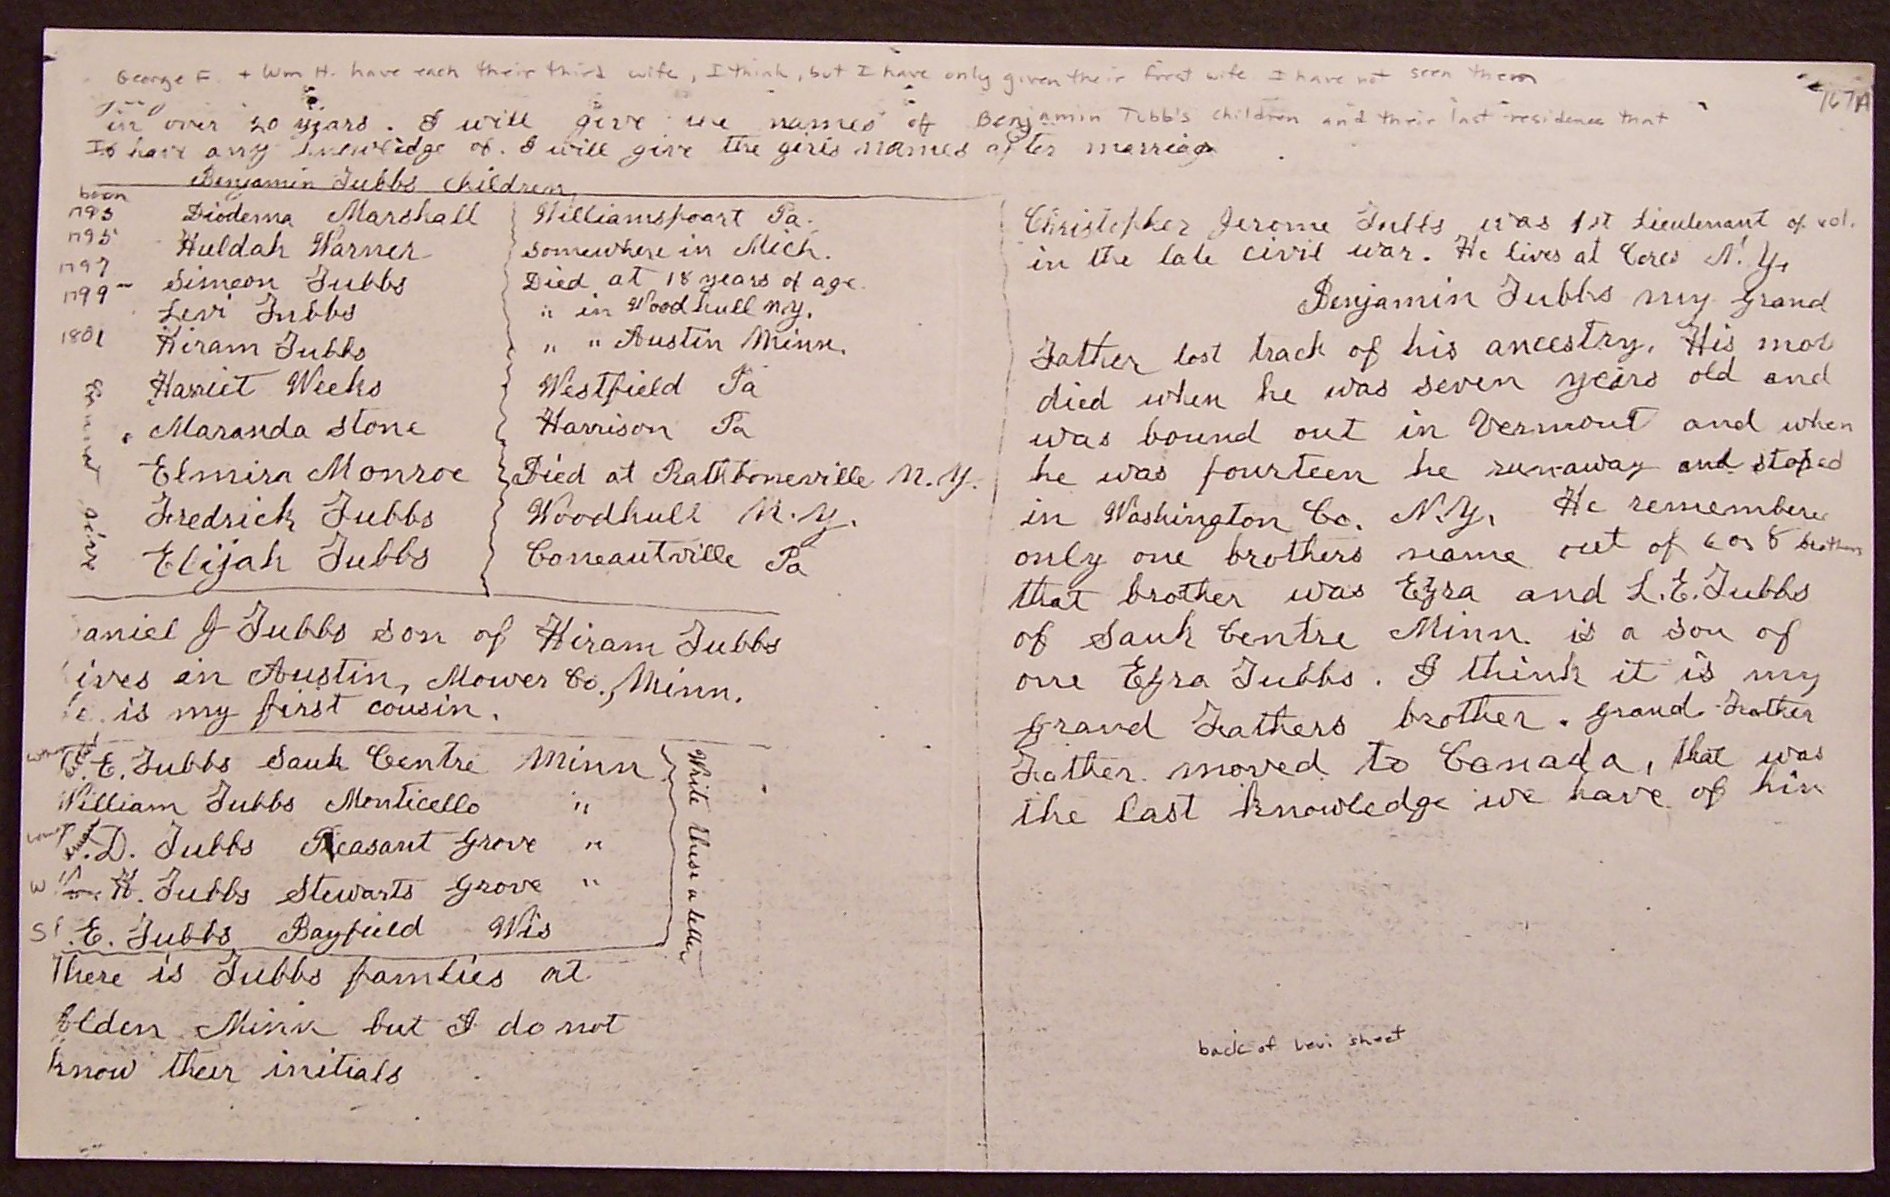 George F. + Wm H. have each their third wife, I think, but I have only given their first wife I have not seen them
167A
in over 20 years. I will give the names of Benjamin Tubb's children and their last residence that
I have any knowledge of. I will give the girls names after marriage
Benjamin Tubbs children
born
1793 Diodema Marshall Williamspoart Pa.
1795 Huldah Warner somewhere in Mich.
1797 Simeon Tubbs Died at 18 years of age.
1799 Levi Tubbs " in Woodhull N.Y.
1801 Hiram Tubbs " " Austin Minn.
Harriet Weeks Westfield Pa
Maranda Stone Harrison Pa
Elmira Monroe Died at Rathboneville N.Y.
Fredrick Tubbs Woodhull N.Y.
Elijah Tubbs Coneautville Pa
aniel J Tubbs son of Hiram Tubbs
ives in Austin, Mower Co., Minn.
e is my first cousin.
L. E. Tubbs Sauk Centre Minn
William Tubbs Monticello "
. D. Tubbs Pleasant Grove "
H. Tubbs Stewarts Grove "
. E. Tubbs Bayfield Wis
Write these a letter
There is Tubbs famlies at
Alden Minn but I do not
know their initials
Christopher Jerome Tubbs was 1st Lieutenant of vol.
in the late civil war. He lives at Ceres N.Y.
Benjamin Tubbs my grand
Father lost track of his ancestry. His mot
died when he was seven years old and
was bound out in Vermont and when
he was fourteen he runaway and stoped
in Washington Co. N.Y. He remembers
only one brothers name out of 6 or 8 brothers
that brother was Ezra and L.E. Tubbs
of Sauk Centre Minn is a son of
one Ezra Tubbs. I think it is my
grand Fathers brother. grand Father
Father moved to Canada, that was
the last knowledge we have of him
back of Levi sheet